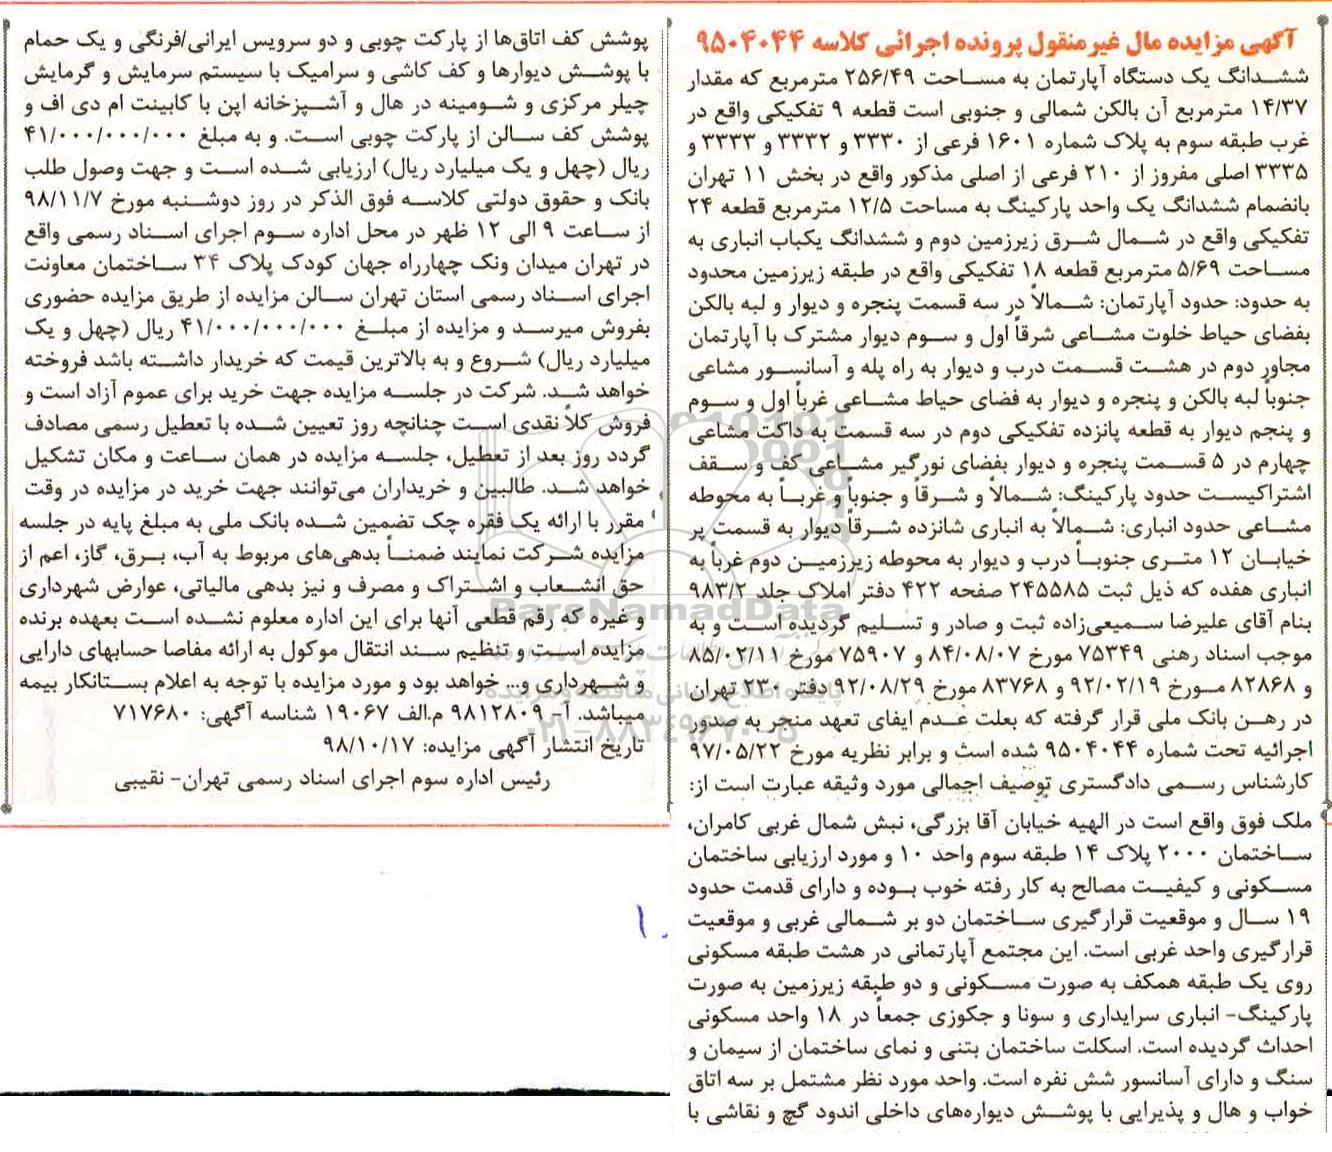 آگهی مزایده مال غیرمنقول پرونده اجرائی کلاسه ۹۵۰۴۰۴۴
ششدانگ یک دستگاه آپارتمان به مساحت ۲۵۶/۴۹ مترمربع که مقدار
۱۴/۳۷ مترمربع آن بالکن شمالی و جنوبی است قطعه ۹ تفکیکی واقع در
غرب طبقه سوم به پلاک شماره ۱۶۰۱ فرعی از ۳۳۳۰ و ۳۳۳۲ و ۳۳۳۳ و
۳۳۳۵ اصلی مفروز از ۲۱۰ فرعی از اصلی مذکور واقع در بخش ۱۱ تهران
بانضمام ششدانگ یک واحد پارکینگ به مساحت ۱۲/۵ مترمربع قطعه ۲۴
تفکیکی واقع در شمال شرق زیرزمین دوم و ششدانگ یکباب انباری به
مساحت ۵/۶۹ مترمربع قطعه ۱۸ تفکیکی واقع در طبقه زیرزمین محدود
به حدود: حدود آپارتمان: شمالاً در سه قسمت پنجره و دیوار و لبه بالکن
بفضای حیاط خلوت مشاعی شرقاً اول و سوم دیوار مشترک با آپارتمان
مجاور دوم در هشت قسمت درب و دیوار به راه پله و آسانسور مشاعی
جنوباً لبه بالکن و پنجره و دیوار به فضای حیاط مشاعی غرباً اول و سوم
و پنجم دیوار به قطعه پانزده تفکیکی دوم در سه قسمت به داکت مشاعی
چهارم در ۵ قسمت پنجره و دیوار بفضای نورگیر مشاعی کف و سقف
اشتراکیست حدود پارکینگ: شمالاً و شرقاً و جنوباً و غرباً به محوطه
مشاعی حدود انباری: شمالاً به انباری شانزده شرقاً دیوار به قسمت پر
خیابان ۱۲ متری جنوباً درب و دیوار به محوطه زیرزمین دوم غرباً به
انباری هفده که ذیل ثبت ۲۴۵۵۸۵ صفحه ۴۲۲ دفتر املاک جلد ۹۸۳/۲
بنام آقای علیرضا سمیعی‌زاده ثبت و صادر و تسلیم گردیده است و به
موجب اسناد رهنی ۷۵۳۴۹ مورخ ۸۴/۰۸/۰۷ و ۷۵۹۰۷ مورخ ۸۵/۰۲/۱۱
و ۸۲۸۶۸ مورخ ۹۲/۰۲/۱۹ و ۸۳۷۶۸ مورخ ۹۲/۰۸/۲۹ دفتر ۲۳۰ تهران
در رهن بانک ملی قرار گرفته که بعلت عدم ایفای تعهد منجر به صدور
اجرائیه تحت شماره ۹۵۰۴۰۴۴ شده است و برابر نظریه مورخ ۹۷/۰۵/۲۲
کارشناس رسمی دادگستری توصیف اجمالی مورد وثیقه عبارت است از:
ملک فوق واقع است در الهیه خیابان آقا بزرگی، نبش شمال غربی کامران،
ساختمان ۲۰۰۰ پلاک ۱۴ طبقه سوم واحد ۱۰ و مورد ارزیابی ساختمان
مسکونی و کیفیت مصالح به کار رفته خوب بوده و دارای قدمت حدود
۱۹ سال و موقعیت قرارگیری ساختمان دو بر شمالی غربی و موقعیت
قرارگیری واحد غربی است. این مجتمع آپارتمانی در هشت طبقه مسکونی
روی یک طبقه همکف به صورت مسکونی و دو طبقه زیرزمین به صورت
پارکینگ- انباری سرایداری و سونا و جکوزی جمعاً در ۱۸ واحد مسکونی
احداث گردیده است. اسکلت ساختمان بتنی و نمای ساختمان از سیمان و
سنگ و دارای آسانسور شش نفره است. واحد مورد نظر مشتمل بر سه اتاق
خواب و هال و پذیرایی با پوشش دیواره‌های داخلی اندود گچ و نقاشی با
پوشش کف اتاق‌ها از پارکت چوبی و دو سرویس ایرانی/فرنگی و یک حمام
با پوشش دیوارها و کف کاشی و سرامیک با سیستم سرمایش و گرمایش
چیلر مرکزی و شومینه در هال و آشپزخانه اپن با کابینت ام دی اف و
پوشش کف سالن از پارکت چوبی است. و به مبلغ ۴۱/۰۰۰/۰۰۰/۰۰۰
ریال (چهل و یک میلیارد ریال) ارزیابی شده است و جهت وصول طلب
بانک و حقوق دولتی کلاسه فوق الذکر در روز دوشنبه مورخ ۹۸/۱۱/۷
از ساعت ۹ الی ۱۲ ظهر در محل اداره سوم اجرای اسناد رسمی واقع
در تهران میدان ونک چهارراه جهان کودک پلاک ۳۴ ساختمان معاونت
اجرای اسناد رسمی استان تهران سالن مزایده از طریق مزایده حضوری
بفروش میرسد و مزایده از مبلغ ۴۱/۰۰۰/۰۰۰/۰۰۰ ریال (چهل و یک
میلیارد ریال) شروع و به بالاترین قیمت که خریدار داشته باشد فروخته
خواهد شد. شرکت در جلسه مزایده جهت خرید برای عموم آزاد است و
فروش کلاً نقدی است چنانچه روز تعیین شده با تعطیل رسمی مصادف
گردد روز بعد از تعطیل، جلسه مزایده در همان ساعت و مکان تشکیل
خواهد شد. طالبین و خریداران می‌توانند جهت خرید در مزایده در وقت
مقرر با ارائه یک فقره چک تضمین شده بانک ملی به مبلغ پایه در جلسه
مزایده شرکت نمایند ضمناً بدهی‌های مربوط به آب، برق، گاز، اعم از
حق انشعاب و اشتراک و مصرف و نیز بدهی مالیاتی، عوارض شهرداری
و غیره که رقم قطعی آنها برای این اداره معلوم نشده است بعهده برنده
مزایده است و تنظیم سند انتقال موکول به ارائه مفاصا حسابهای دارایی
و شهرداری و... خواهد بود و مورد مزایده با توجه به اعلام بستانکار بیمه
میباشد. آ- ۹۸۱۲۸۰۹ م.الف ۱۹۰۶۷ شناسه آگهی: ۷۱۷۶۸۰
تاریخ انتشار آگهی مزایده: ۹۸/۱۰/۱۷
رئیس اداره سوم اجرای اسناد رسمی تهران- نقیبی
ParsNamadData
پایگاه اطلاع رسانی مناقصه و مزایده
۰۲۱-۸۸۳۴۹۶۷۰-۵